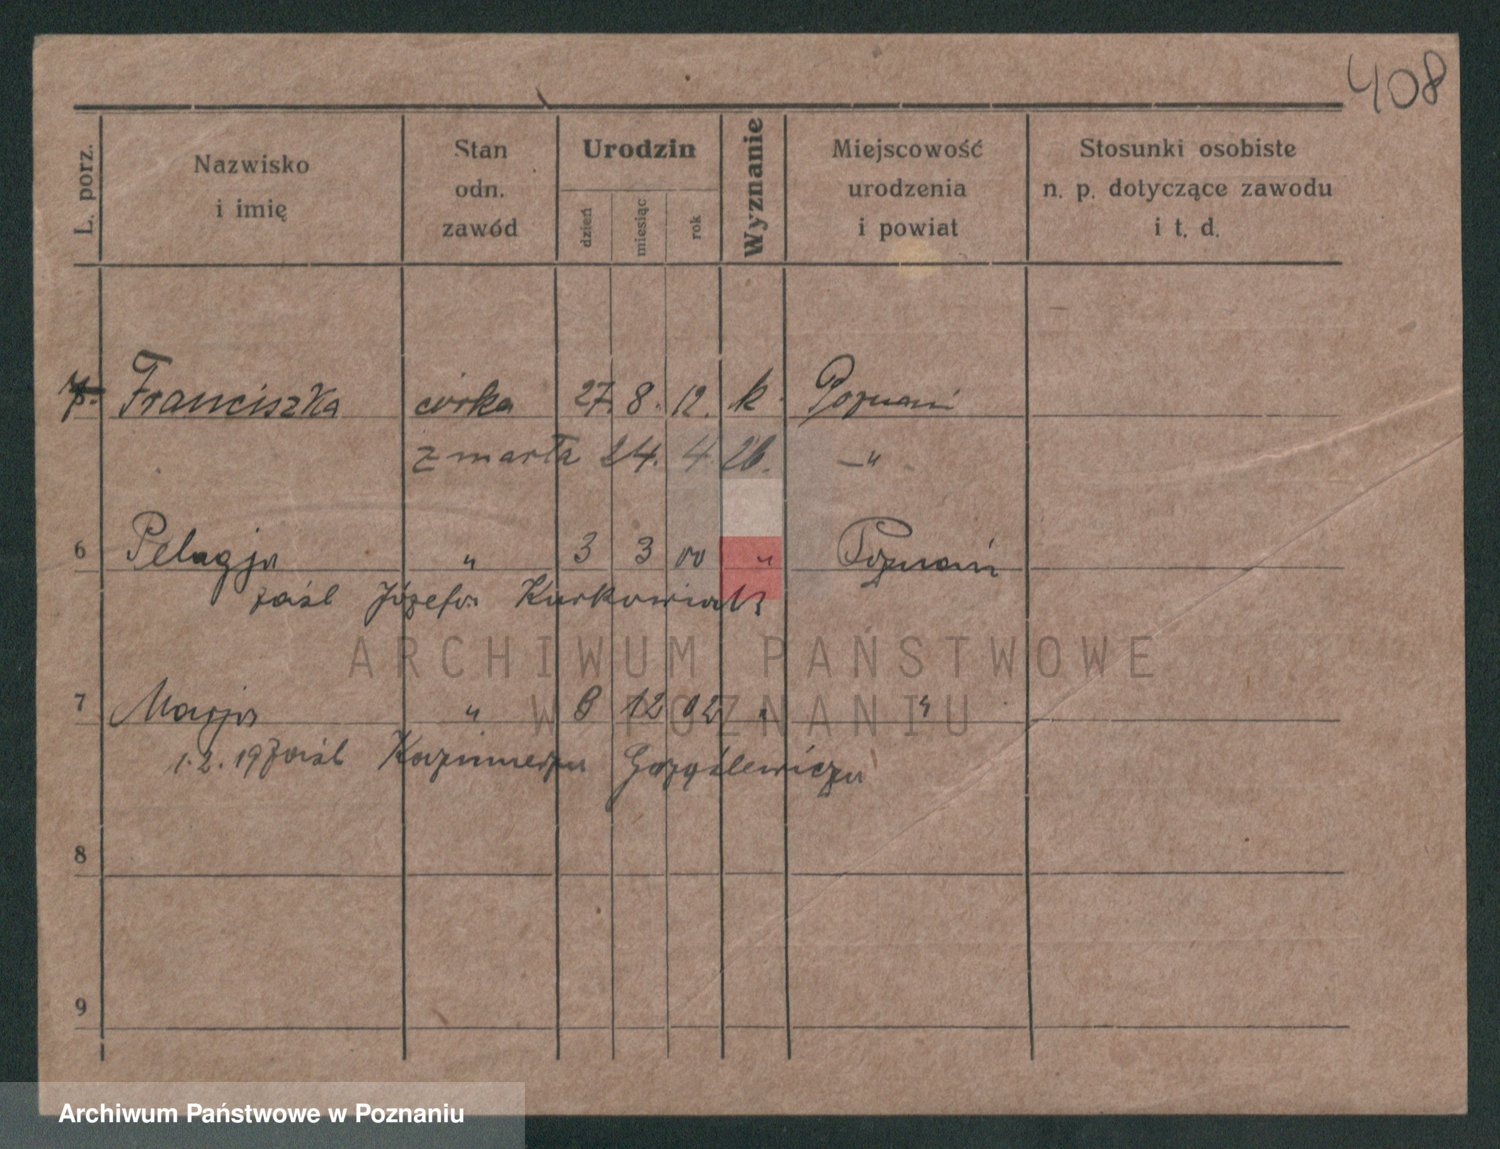 408
L. porz.
Nazwisko i imię
Stan odn. zawód
Urodzin
dzień
miesiąc
rok
Wyznanie
Miejscowość urodzenia i powiat
Stosunki osobiste n. p. dotyczące zawodu i t. d.
Franciszka córka 27. 8. 12. k. Poznań
zmarła 24. 4. 26. —"
6 Pelagja " 3 3 00 " Poznań
zaśl Józefa Kurkowiak
7 Marja " 8 12 02 " "
1. 2. 19 zaśl Kazimierza
8
9
ARCHIWUM PAŃSTWOWE
W POZNANIU
Archiwum Państwowe w Poznaniu